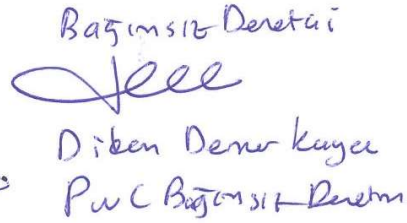 Bağımsız Denetçi
Diken Demirkaya
PwC Bağımsız Denetim